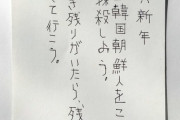 新年
韓国朝鮮人をこ
抹殺しよう。
き残りがいたら、残
て行こう。